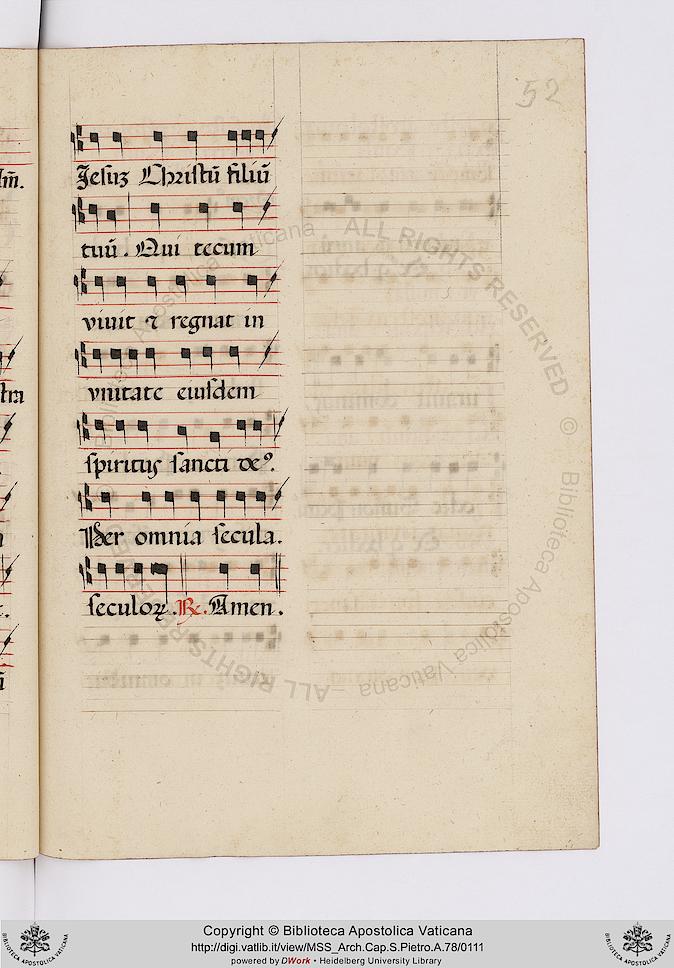 52
Jesuʒ Christū filiū
tuū. Qui tecum
viuit ⁊ regnat in
vnitate eiusdem
spiritꝯ sancti deꝰ.
Per omnia secula.
seculoꝝ. ℞. Amen.
Copyright © Biblioteca Apostolica Vaticana
http://digi.vatlib.it/view/MSS_Arch.Cap.S.Pietro.A.78/0111
powered by DWork • Heidelberg University Library
BIBLIOTECA APOSTOLICA VATICANA
BIBLIOTECA APOSTOLICA VATICANA
ALL RIGHTS RESERVED © Biblioteca Apostolica Vaticana
ALL RIGHTS RESERVED © Biblioteca Apostolica Vaticana